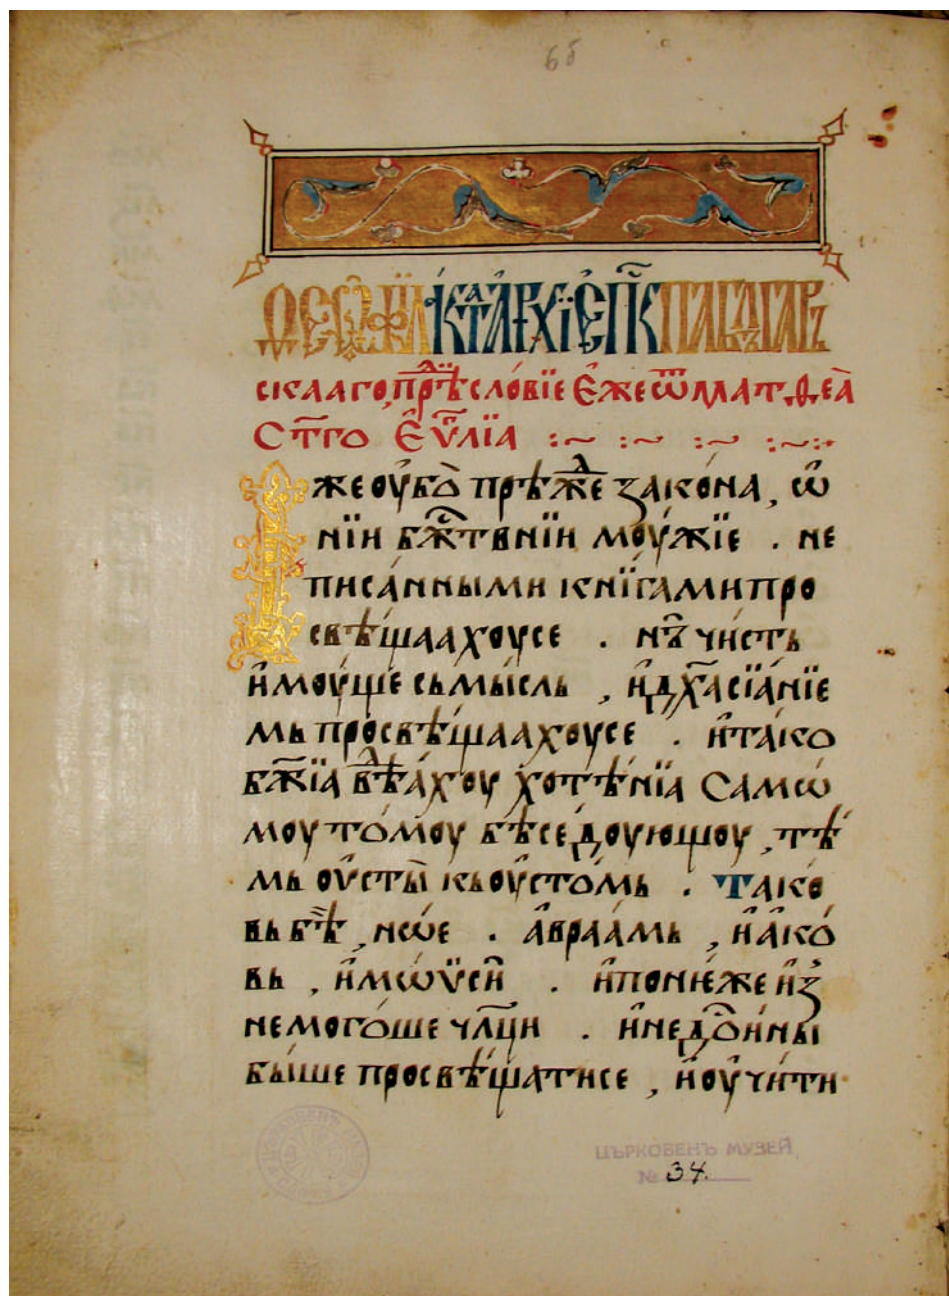 6б
Ѳеѡ҆фїлакта архїепⷭ҇кпа блъгар
скааго, прⷣѣсловїе є҆же ѿ маⷮѳеа
ст҃го є҆ѵⷢ҇лїа :~ :~ :~ :~:
Иже оу҆бо̀ прѣжⷣе зако́на, ѡ҆
нїи бжⷭ҇твнїи моу́жїе . не
писа́нными кнїгами про
свѣ́щаахоусе . нѫ чи́стъ
и҆моу́ще съмы́сль , и҆ дх҃а сїа́нїе
мь просвѣ́щаахоусе . и҆ та́ко
бж҃їа вѣ́дⷣахоу хотѣ́нїа самѡ
моу то́моу бѣсе́доующоу , тѣ́
мь оу҆сты̀ къ оу҆сто́мь . Тако́
вь бѣ̀ , нѡ́е . а҆враа́мь , и҆ а҆ко́
вь , и҆ мѡѷси . и҆ поне́же из
немого́ше чл҃ци . и҆ недⷭ҇о́ины
бы́ше просвѣ́щатисе , и҆ оу҆чи́ти
ЦЪРКОВЕНЪ МУЗЕЙ
№ 34.